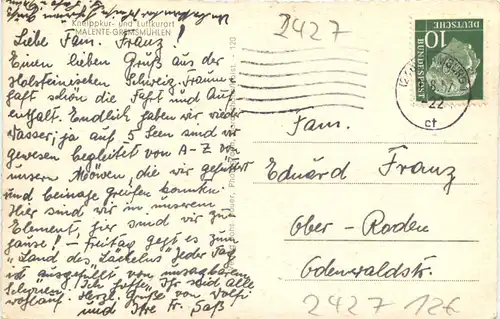 Kneippkur- und Luftkurort
MALENTE-GREMSMÜHLEN
Liebe Fam. Franz!
Einen lieben Gruß aus der
Holsteinischen Schweiz. Traum-
haft schön die Fahrt und Auf-
enthalt. Endlich haben wir wieder
Wasser, ja auf 5 Seen sind wir
gewesen begleitet von A-Z von
unsern Möwen, die wir gefüttert
und beinahe greifen konnten.
Hier sind wir in unserem
Element, hier sind wir zu-
hause! – Freitag geht es zum
"Land des Lächelns" Jeder Tag
ist ausgefüllt von unsagbarem
Schönen. Ich hoffe Ihr seid alle
wohlauf. Herzl. Grüße von
und Ihre Fr. Saß
2427
10
DEUTSCHE
BUNDESPOST
-22
ct
Fam.
Eduard Franz
Ober-Roden
Odenwaldstr.
2427 126
120